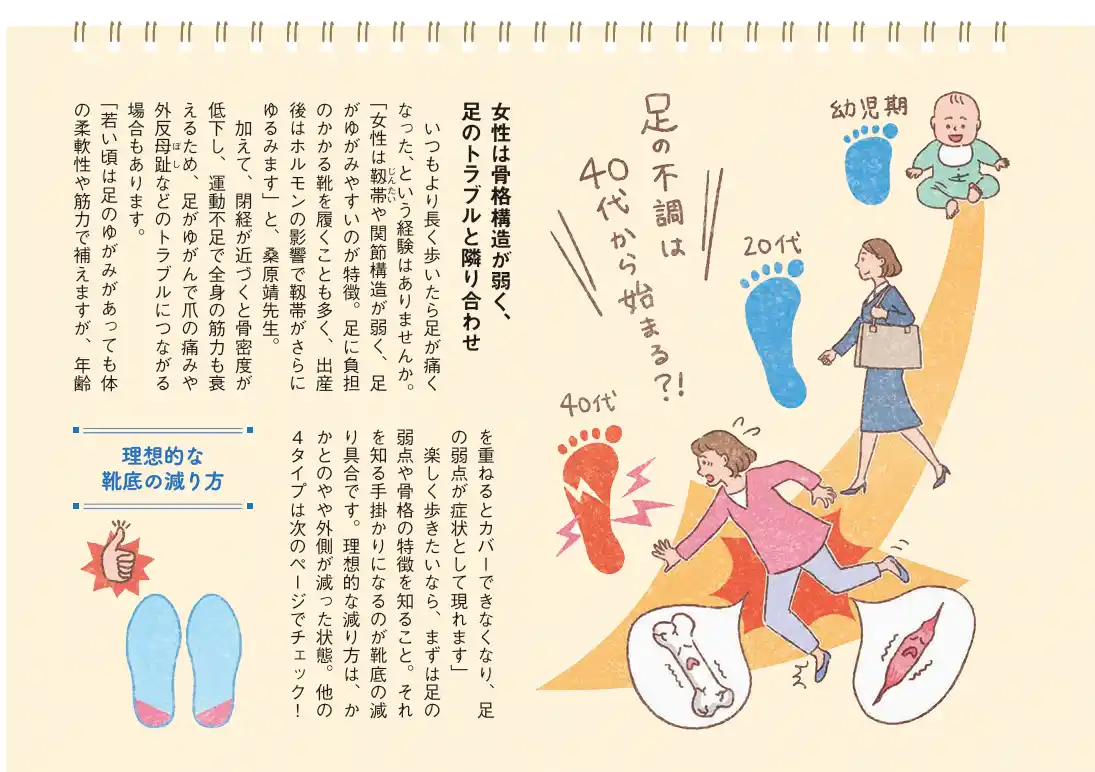 幼児期
20代
40代
足の不調は
40代から始まる?!
女性は骨格構造が弱く、
足のトラブルと隣り合わせ
いつもより長く歩いたら足が痛く
なった、という経験はありませんか。
「女性は靱帯や関節構造が弱く、足
じんたい
がゆがみやすいのが特徴。足に負担
のかかる靴を履くことも多く、出産
後はホルモンの影響で靱帯がさらに
ゆるみます」と、桑原靖先生。
加えて、閉経が近づくと骨密度が
低下し、運動不足で全身の筋力も衰
えるため、足がゆがんで爪の痛みや
外反母趾などのトラブルにつながる
ぼし
場合もあります。
「若い頃は足のゆがみがあっても体
の柔軟性や筋力で補えますが、年齢
を重ねるとカバーできなくなり、足
の弱点が症状として現れます」
楽しく歩きたいなら、まずは足の
弱点や骨格の特徴を知ること。それ
を知る手掛かりになるのが靴底の減
り具合です。理想的な減り方は、か
かとのやや外側が減った状態。他の
4タイプは次のページでチェック!
理想的な
靴底の減り方